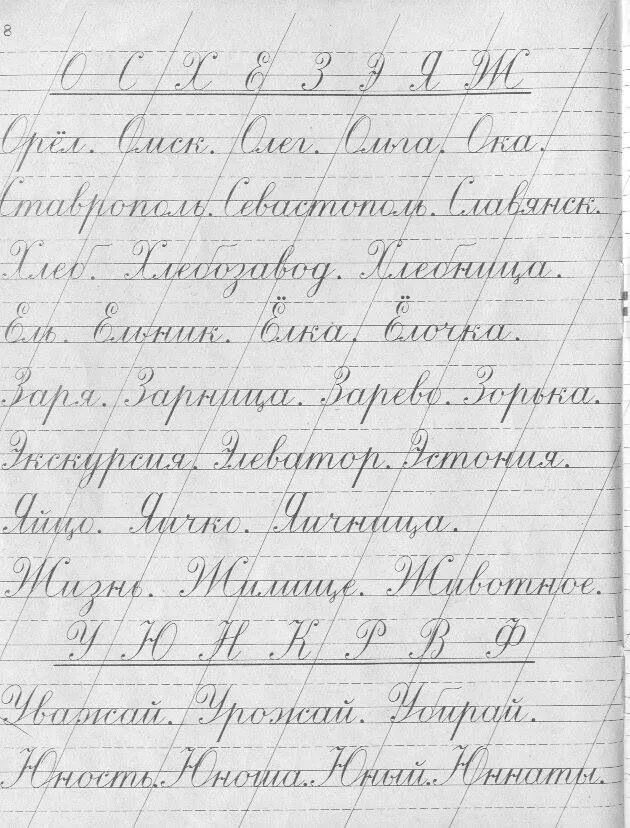 8
О С Х Е З Э Я Ж
Орёл. Омск. Олег. Ольга. Ока.
Ставрополь. Севастополь. Славянск.
Хлеб. Хлебозавод. Хлебница.
Ель. Ельник. Ёлка. Ёлочка.
Заря. Зарница. Зарево. Зорька.
Экскурсия. Элеватор. Эстония.
Яйцо. Яичко. Яичница.
Жизнь. Жилище. Животное.
У Ю Н К Р В Ф
Уважай. Урожай. Убирай.
Юность. Юноша. Юный. Юннаты.